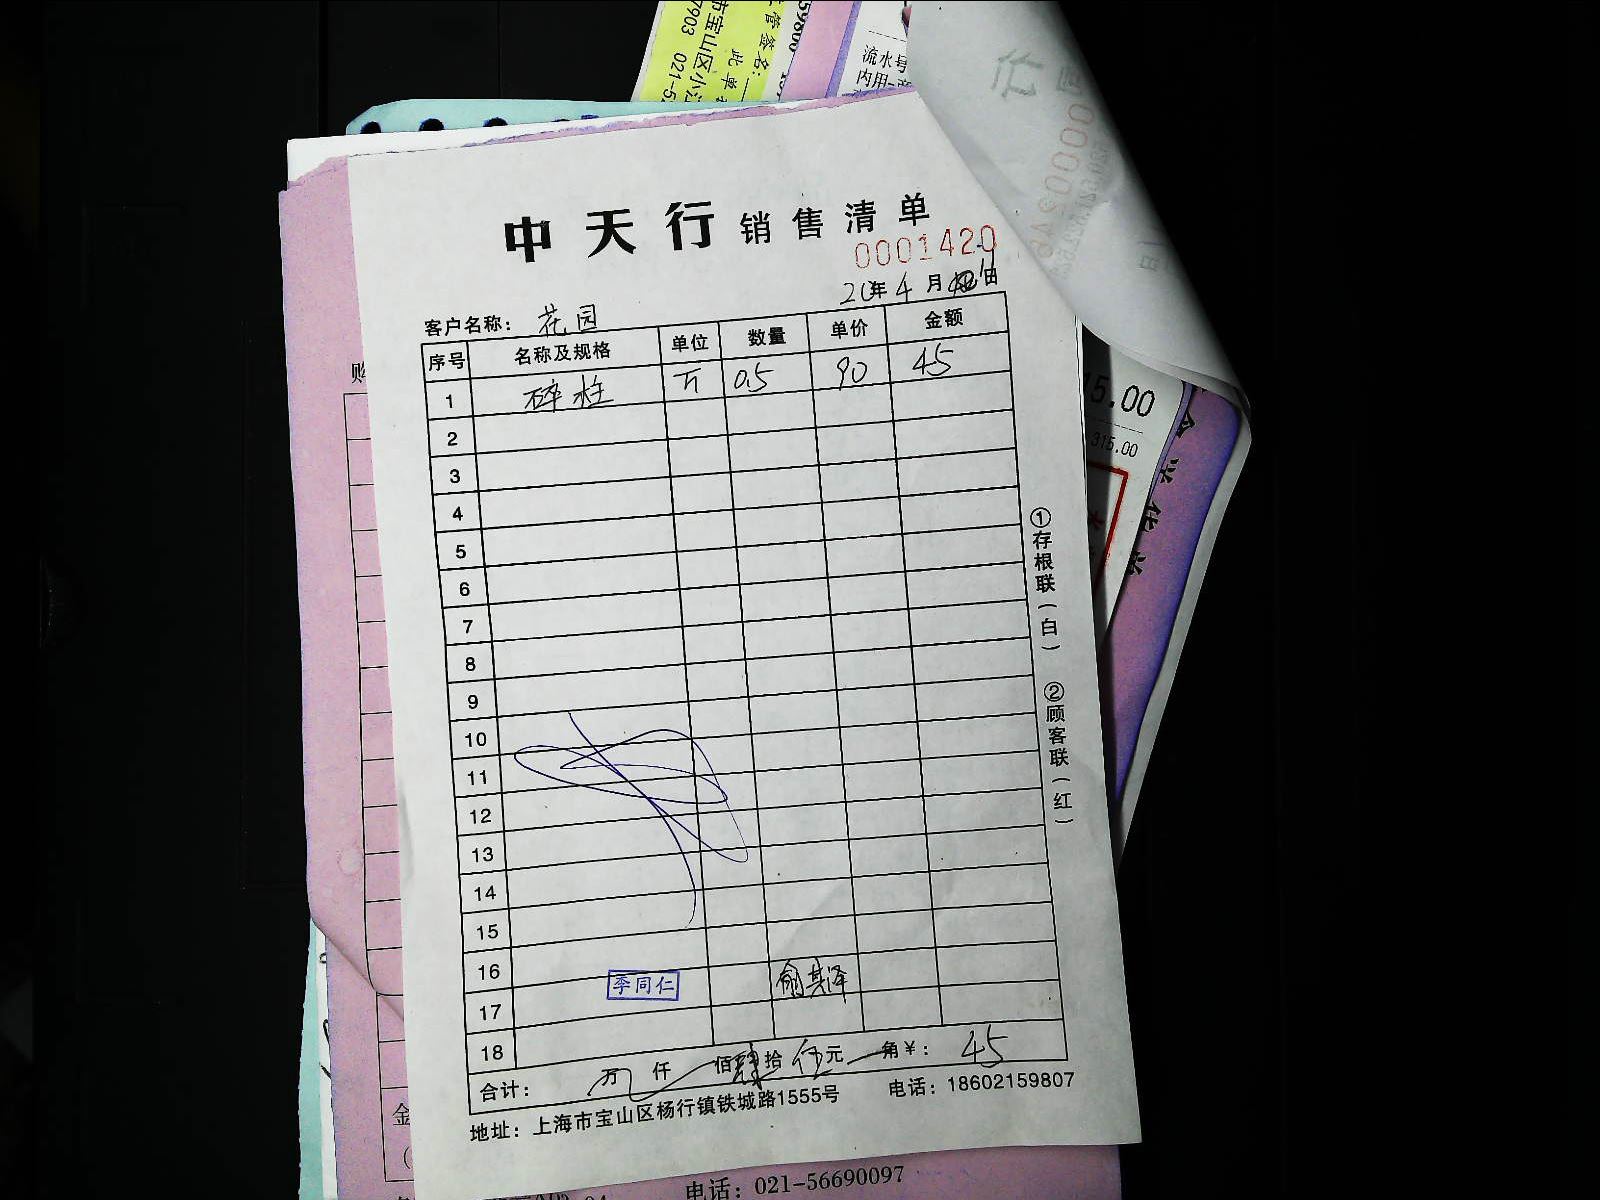 管签名:
此单
市宝山区小
7903 021-5
59800
流水号
内用-商
中天行 销售清单
0001420
年4月 日
客户名称: 花园
序号 名称及规格 单位 数量 单价 金额
1 碎桂 斤 0.5 90 45
2
3
4
5
6
7
8
9
10
11
12
13
14
15
16
17
18
李同仁
俞其泽
合计: 万 仟 佰肆拾伍元 角¥: 45
地址: 上海市宝山区杨行镇铁城路1555号 电话: 18602159807
①存根联(白) ②顾客联(红)
购
15.00
315.00
金
电话: 021-56690097